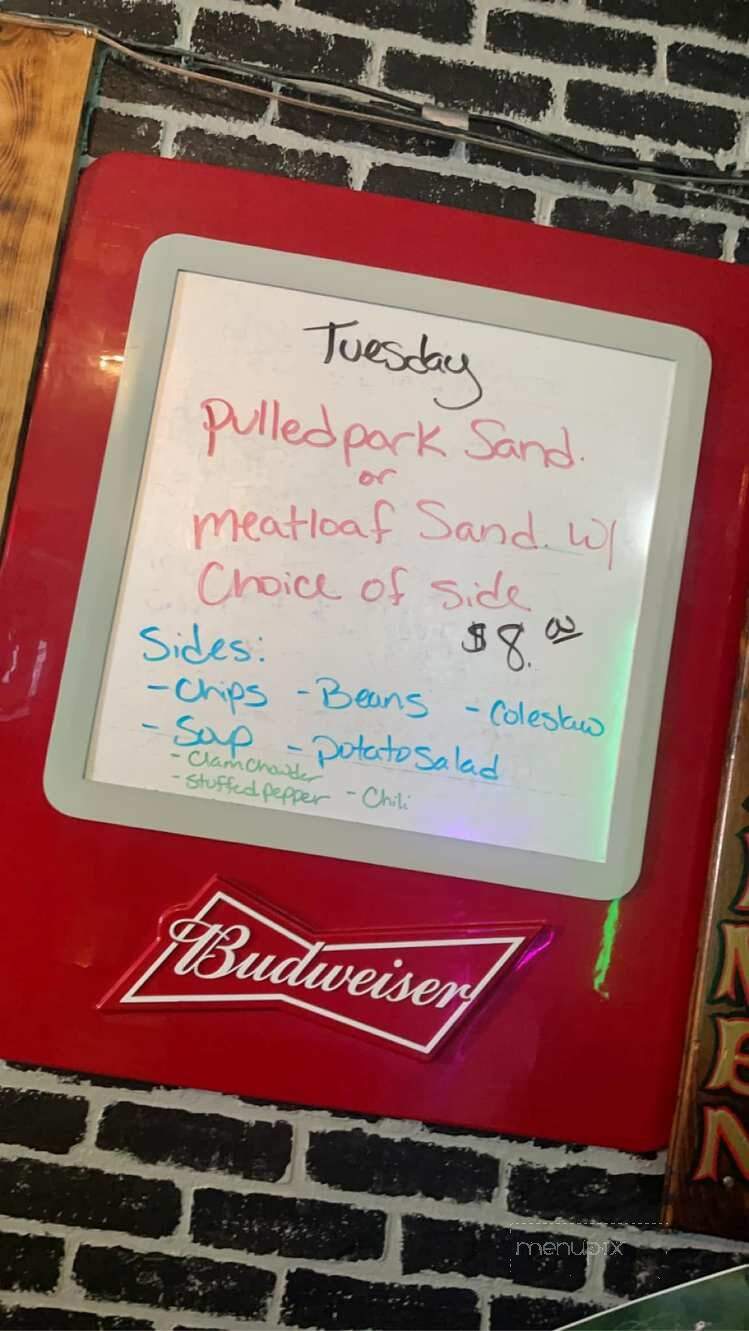 Tuesday
Pulled pork Sand.
or
meatloaf Sand. w/
Choice of side
$8.00
Sides:
- Chips - Beans - Coleslaw
- Soup - Potato Salad
- Clam Chowder
- Stuffed pepper - Chili
Budweiser
MEN
menupix